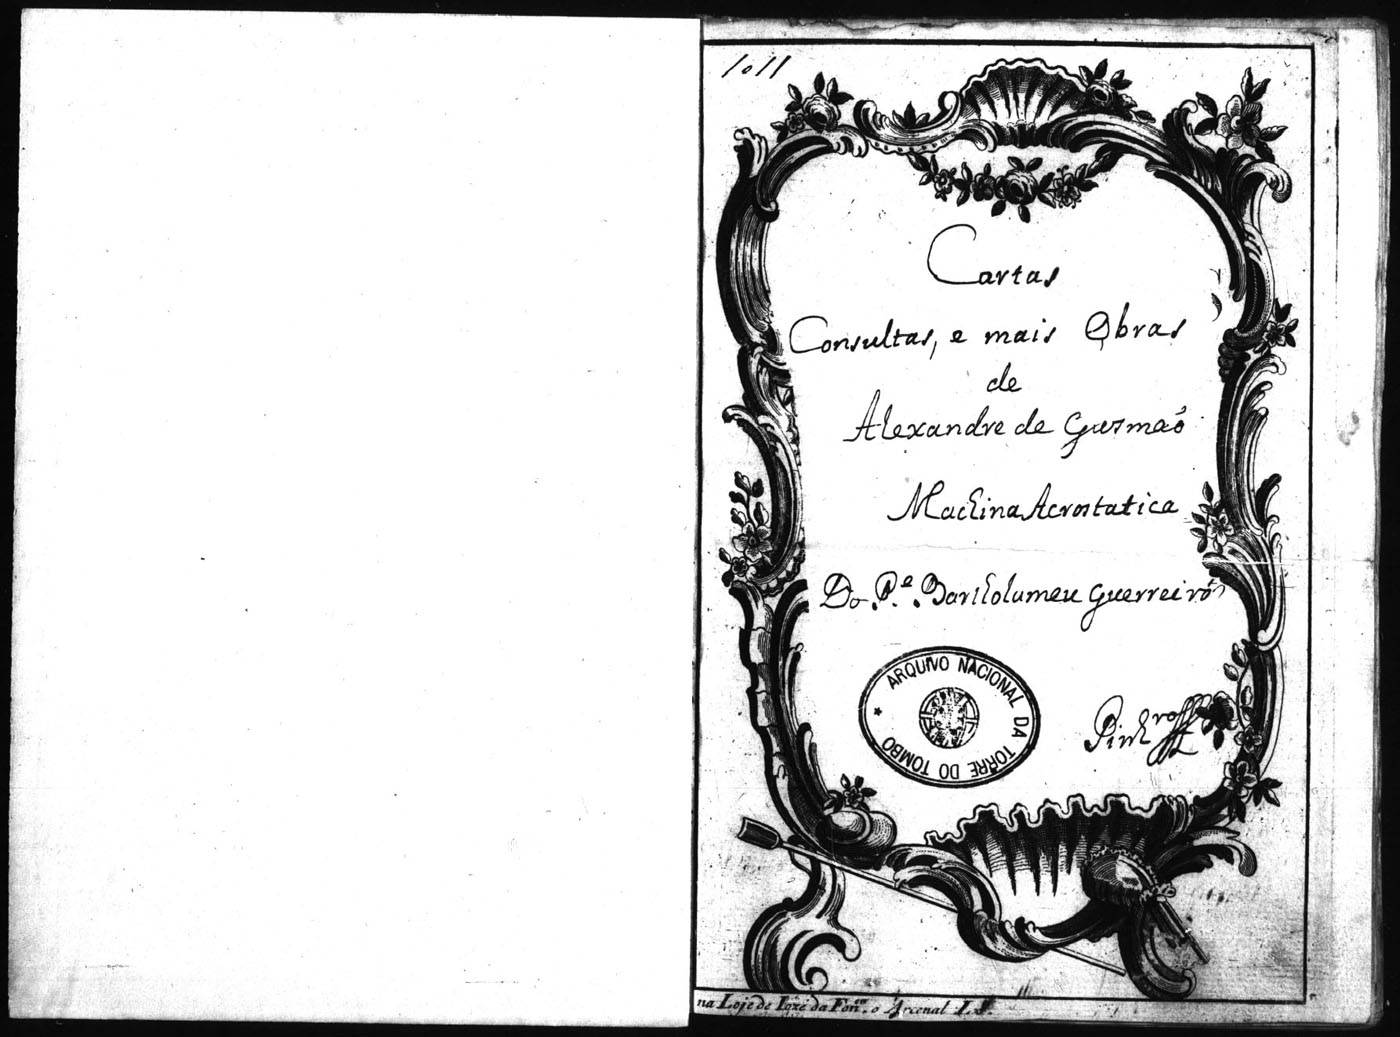 1011
Cartas
Consultas, e mais Obras
de
Alexandre de Gusmaõ
Machina Acrostatica
Do P.e Bartholumeu Guerreiro
ARQUIVO NACIONAL DA TORRE DO TOMBO
na Loje de Ioze da Fon.ca o Arcenal Lx.ª